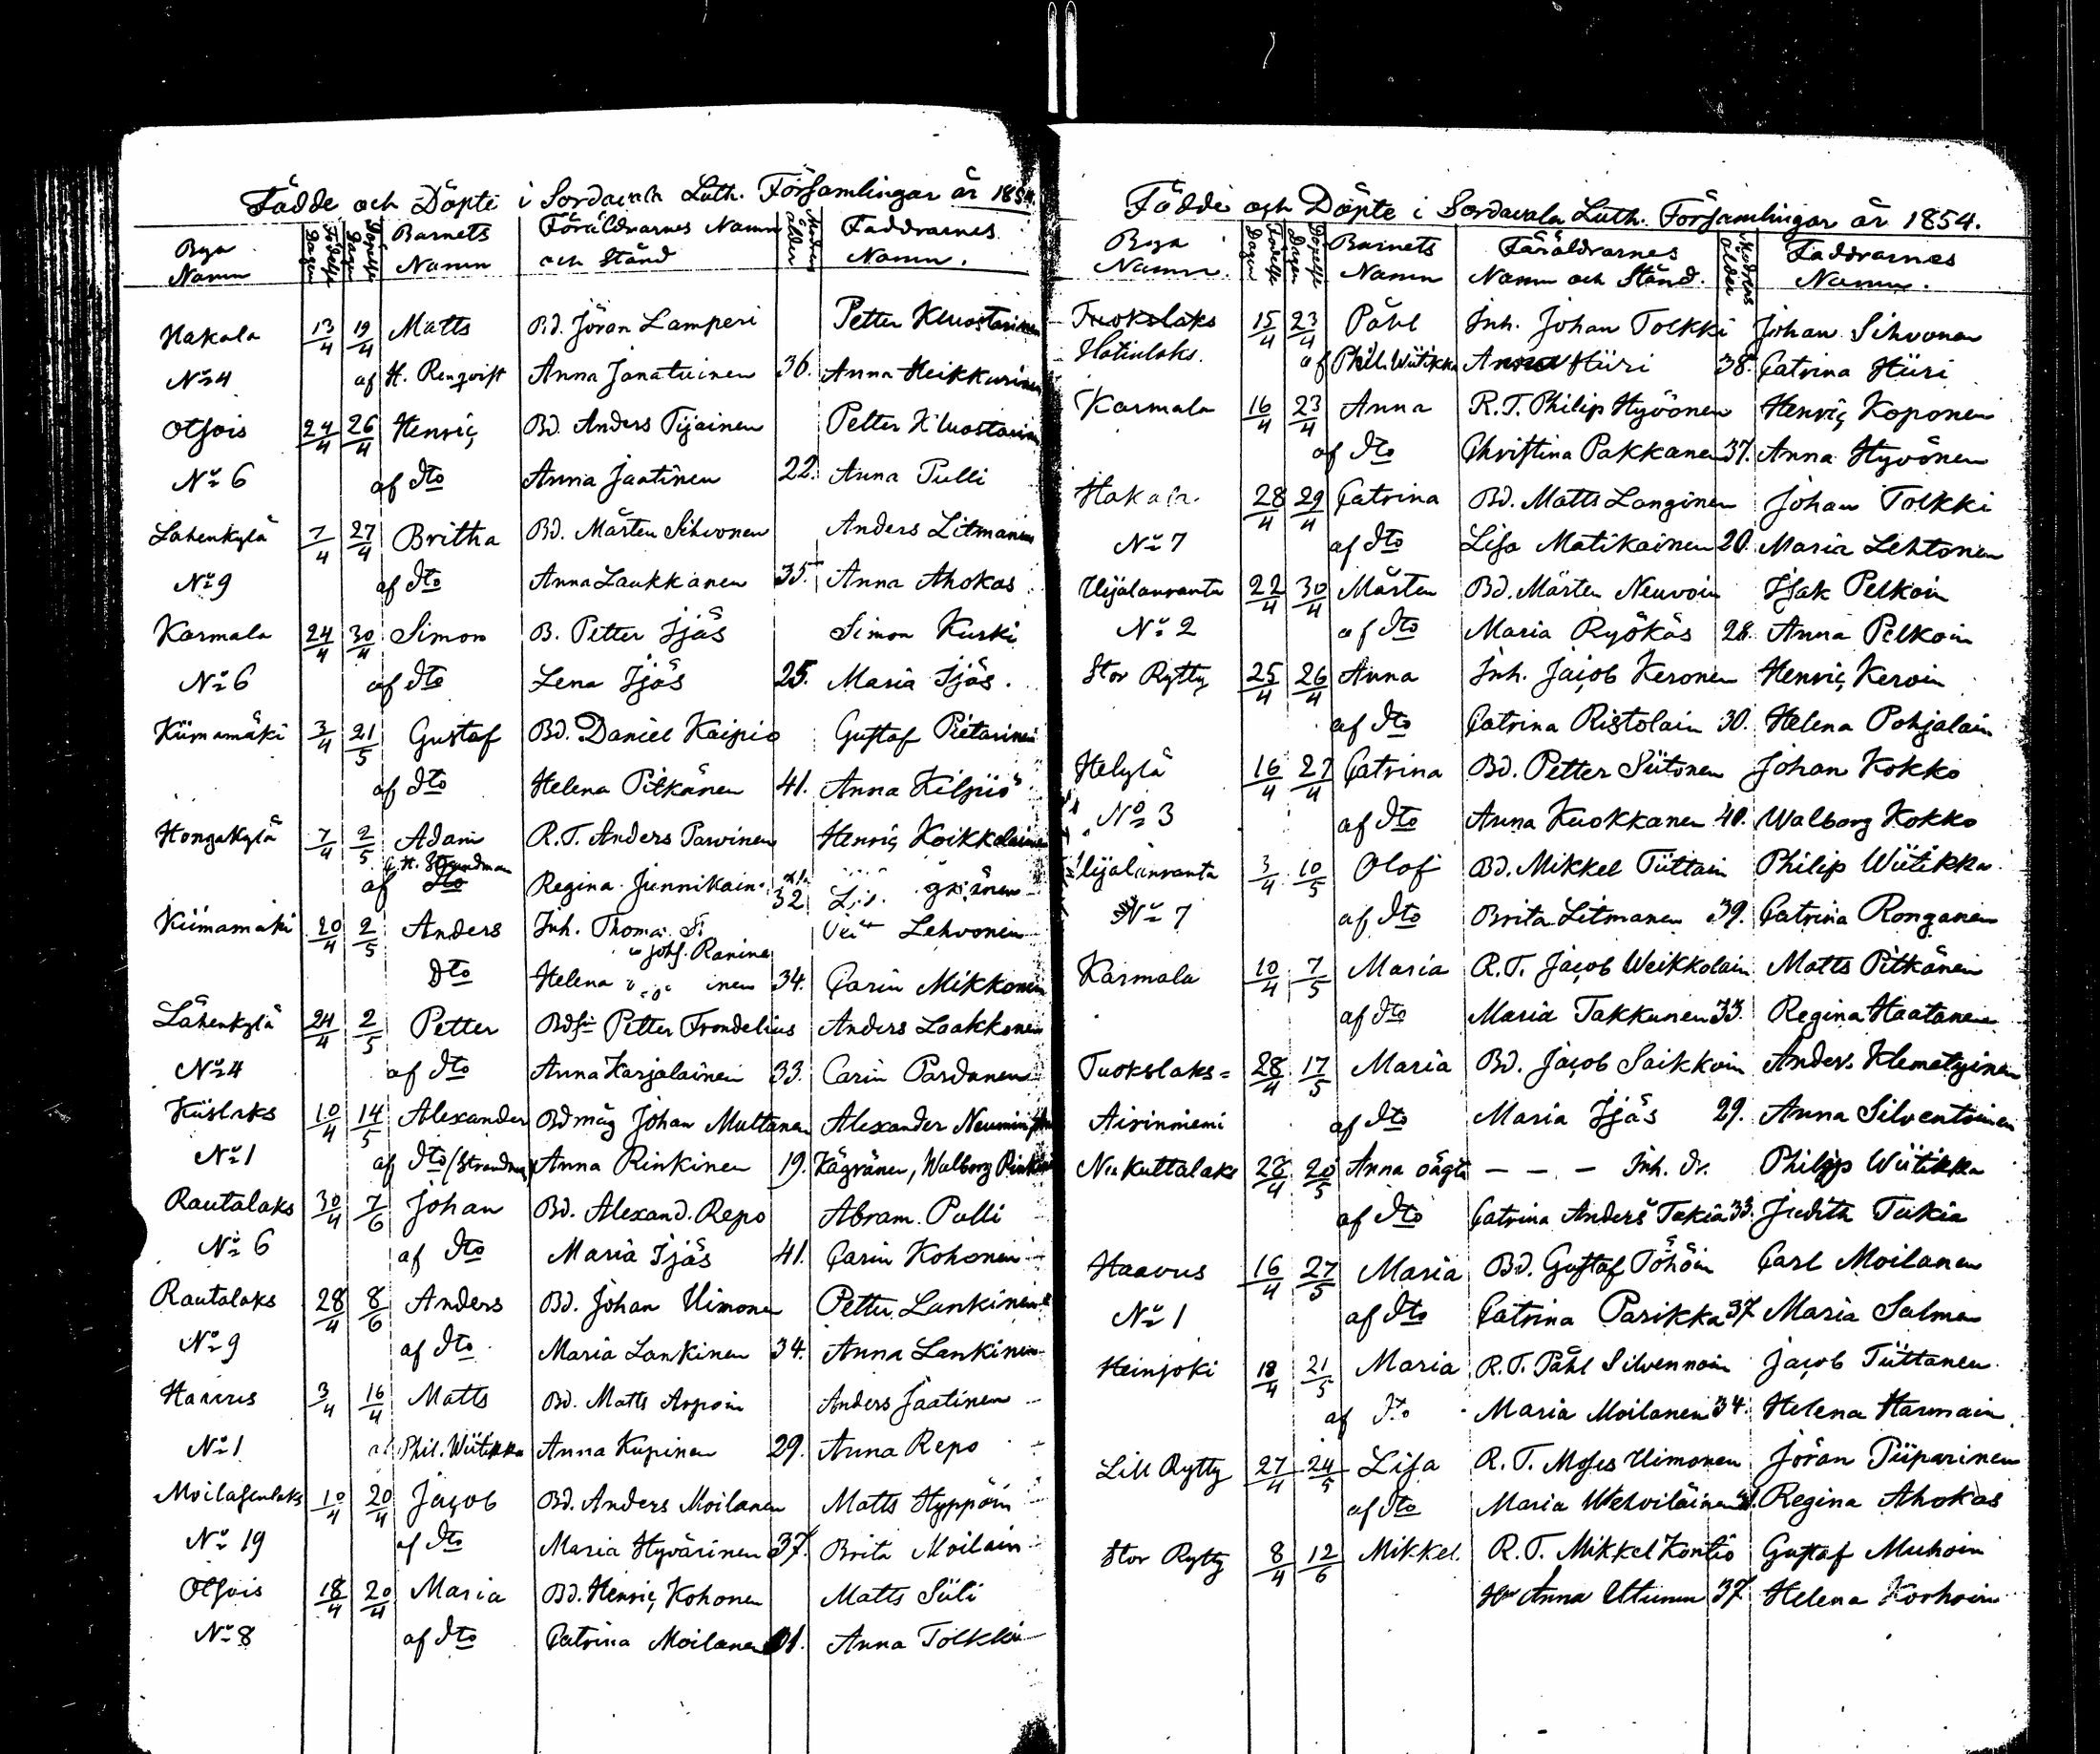 Födde och Döpte i Sordavala Luth. Församlingar år 1854.
Bya Namn
Födelse Dagen
Döpelse Dagen
Barnets Namn
Föräldrarnes Namn och Stånd
Modrens ålder
Faddrarnes Namn.
Hakala 13/4 19/4 Matts Bd. Jöran Lamperi Petter Kluostarinen
No 4 af H. Renqvist Anna Janatuinen 36. Anna Heikkurinen
Otsois 24/4 26/4 Henric Bd. Anders Tijainen Petter Kluostarin
No 6 af Dto Anna Jaatinen 22. Anna Pulli
Lahenkylä 7/4 27/4 Britha Bd. Mårten Sihvonen Anders Litmanen
No 9 af Dto Anna Laukkanen 35. Anna Ahokas
Karmala 24/4 30/4 Simon B. Petter Ijäs Simon Kurki
No 6 af Dto Lena Ijäs 25. Maria Ijäs.
Kiimamäki 3/4 21/5 Gustaf Bd. Daniel Kaipio Gustaf Pietarinen
af Dto Helena Pitkänen 41. Anna Kilpiö
Hongakylä 7/4 2/5 Adam R.T. Anders Parvinen Henric Koikkalainen
af Strandman Regina Junnikain. 32
Kiimamäki 20/4 2/5 Anders Inh. Thomas Lehvonen
Johs. Ranina
Dto Helena inen 34. Carin Mikkonen
Lähenkylä 24/4 2/5 Petter Petter Frondelius Anders Laakkonen
No 4 af Dto Anna Karjalainen 33. Carin Pardanen
Kiislaks 10/4 14/5 Alexander Bdmåg Johan Multanen Alexander
No 1 af Dto (Strandman) Anna Rinkinen 19. Kägränen, Walborg Rinkinen
Rautalaks 30/4 7/6 Johan Bd. Alexand. Repo Abram. Pulli
No 6 af Dto Maria Ijäs 41. Carin Kohonen
Rautalaks 28/4 8/6 Anders Bd. Johan Uimonen Petter Lankinen
No 9 af Dto Maria Lankinen 34. Anna Lankinen
Haavus 3/4 16/4 Matts Bd. Matts Arpoin Anders Jaatinen
No 1 af Phil. Wiitikka Anna Kupinen 29. Anna Repo
Moilasenlaks 10/4 20/4 Jacob Bd. Anders Moilanen Matts Hyppöin
No 19 af Dto Maria Hyvärinen 37. Brita Moilain
Otsois 18/4 20/4 Maria Bd. Henric Kohonen Matts Siili
No 8 af Dto Catrina Moilanen 31. Anna Tolkki
Födde och Döpte i Sordavala Luth. Församlingar år 1854.
Bya Namn.
Födelse Dagen
Döpelse Dagen
Barnets Namn
Föräldrarnes Namn och Stånd.
Modrens ålder
Faddrarnes Namn.
Tuokslaks 15/4 23/4 Påhl Inh. Johan Tolkki Johan Sihvonen
Hotinlaks. af Phil. Wiitikka Anna Hiiri 38. Catrina Hiiri
Karmala 16/4 23/4 Anna R.T. Philip Hyvönen Henric Koponen
af Dto Christina Pakkanen 37. Anna Hyvönen
Hakala 28/4 29/4 Catrina Bd. Matts Langinen Johan Tolkki
No 7 af Dto Lisa Matikainen 20. Maria Lehtonen
Uijalanranta 22/4 30/4 Mårten Bd. Mårten Neuvoin Isak Pelkoin
No 2 af Dto Maria Ryökäs 28. Anna Pelkoin
Stor Rytty 25/4 26/4 Anna Inh. Jacob Keronen Henric Keroin
af Dto Catrina Ristolain 30. Helena Pohjalain
Helylä 16/4 27/4 Catrina Bd. Petter Siitonen Johan Kokko
No 3 af Dto Anna Kuokkanen 40. Walborg Kokko
Uijalanranta 3/4 10/5 Olof Bd. Mikkel Tiittain Philip Wiitikka
No 7 af Dto Brita Litmanen 39. Catrina Ronganen
Karmala 10/4 7/5 Maria R.T. Jacob Weikkolain Matts Pitkänen
af Dto Maria Takkunen 33. Regina Haatanen
Tuokslaks= 28/4 17/5 Maria Bd. Jacob Saikkoin Anders. Klemetyinen
Airinniemi af Dto Maria Ijäs 29. Anna Silventoinen
Kuttalaks 28/4 20/5 Anna oägta – – – Inh. dr. Philip Wiitikka
af Dto Catrina Anders Tukia 33. Judith Tukia
Haavus 16/4 27/5 Maria Bd. Gustaf Töhöin Carl Moilanen
No 1 af Dto Catrina Parikka 37 Maria Salmen
Heinjoki 18/4 21/5 Maria R.T. Påhl Silvennoin Jacob Tiittanen
af Dto Maria Moilanen 34. Helena Harmain
Lill Rytty 27/4 24/5 Lisa R.T. Moses Uimonen Jöran Piiparinen
af Dto Maria Wehviläinen Regina Ahokas
Stor Rytty 8/4 12/6 Mikkel. R.T. Mikkel Kontio Gustaf Muhoin
Anna 37 Helena Korhoin